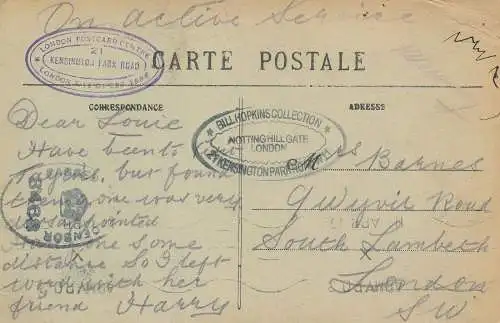 On active Service
LONDON POSTCARD CENTRE
21
KENSINGTON PARK ROAD
CARTE POSTALE
CORRESPONDANCE
ADRESSE
BILL HOPKINS COLLECTION
NOTTING HILL GATE
LONDON
21 KENSINGTON PARK ROAD
Dear Louie
Have been to
but found
was very
disappointed
some
distance so I left
word with her
friend Harry
CENSOR
8468
Barnes
Gwyvir Road
South Lambeth
London
SW